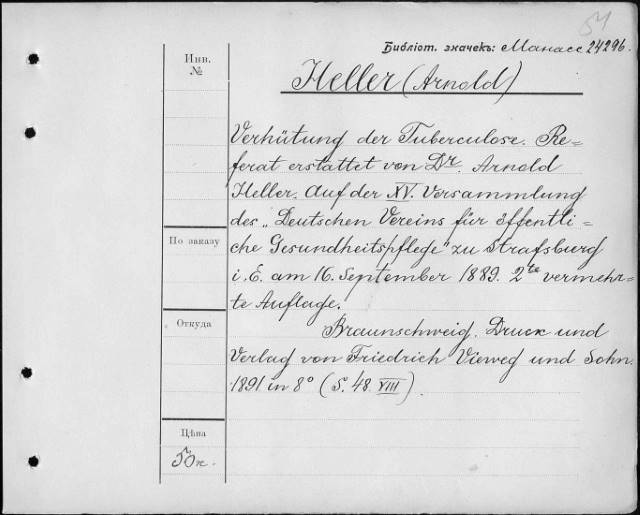 54
Библіот. значекъ: Манасс 24296.
Инв.
№
Heller (Arnold)
Verhütung der Tuberculose. Re=
ferat erstattet von Dr. Arnold
Heller. Auf der XV. Versammlung
des „Deutschen Vereins für öffentli=
che Gesundheitspflege" zu Strafsburg
i. E. am 16. September 1889. 2te vermehr=
te Auflage.
Braunschweig. Druck und
Verlag von Friedrich Vieweg und Sohn.
1891 in 8° (S. 48. VIII).
По заказу
Откуда
Цѣна
50к.